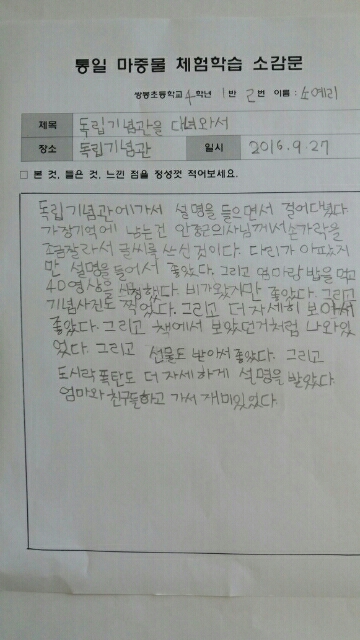 통일 마중물 체험학습 소감문
쌍봉초등학교 4학년 1반 2번 이름 : 소예리
제목 독립기념관을 다녀와서
장소 독립기념관 일시 2016.9.27
□ 본 것, 들은 것, 느낀 점을 정성껏 적어보세요.
독립기념관에가서 설명을 들으면서 걸어다녔다
가장기억에 남는건 안중근의사님께서손가락을
조금잘라서 글씨를 쓰신것이다. 다리가 아파지
만 설명을 들어서 좋았다. 그리고 엄마랑 밥을 먹고
4D영상을 체험했다. 비가왔지만 좋았다. 그리고
기념사진도 찍었다. 그리고 더 자세히 보아서
좋았다. 그리고 책에서 보았던거처럼 나와있
었다. 그리고 선물도 받아서좋았다. 그리고
도시락폭탄도 더 자세하게 설명을 받았다
엄마와 친구들하고 가서 재미있었다.